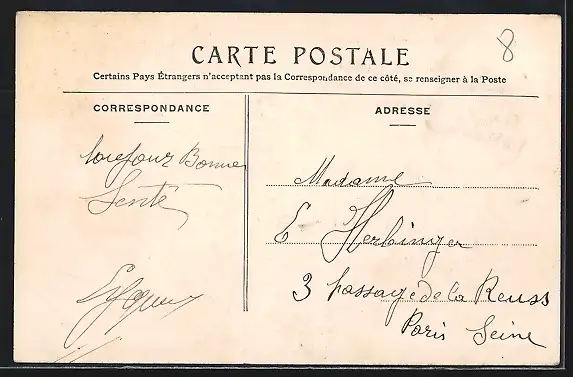 8
CARTE POSTALE
Certains Pays Étrangers n'acceptant pas la Correspondance de ce côté, se renseigner à la Poste
CORRESPONDANCE
ADRESSE
Bonne
Senté
Madame
E Herbinger
3 passage de la Reuss
Paris Seine